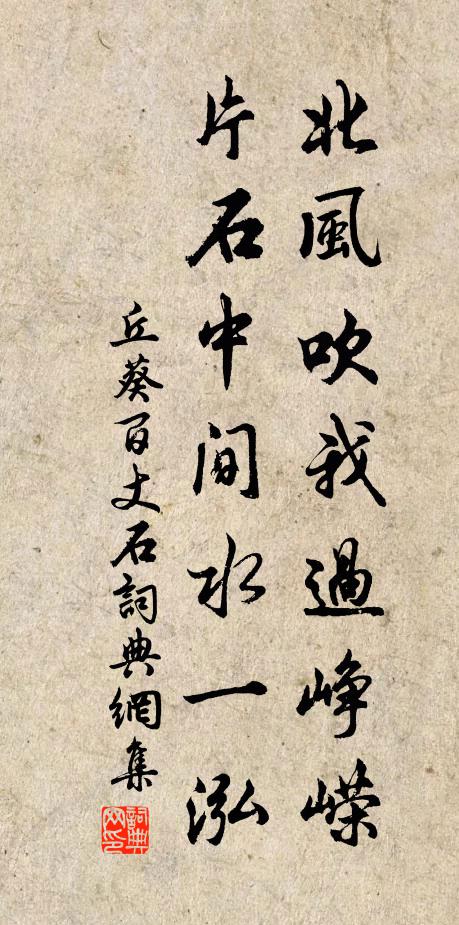 北風吹我過崢嶸
片石中間水一泓
丘葵百丈石詞典網集
詞典网印